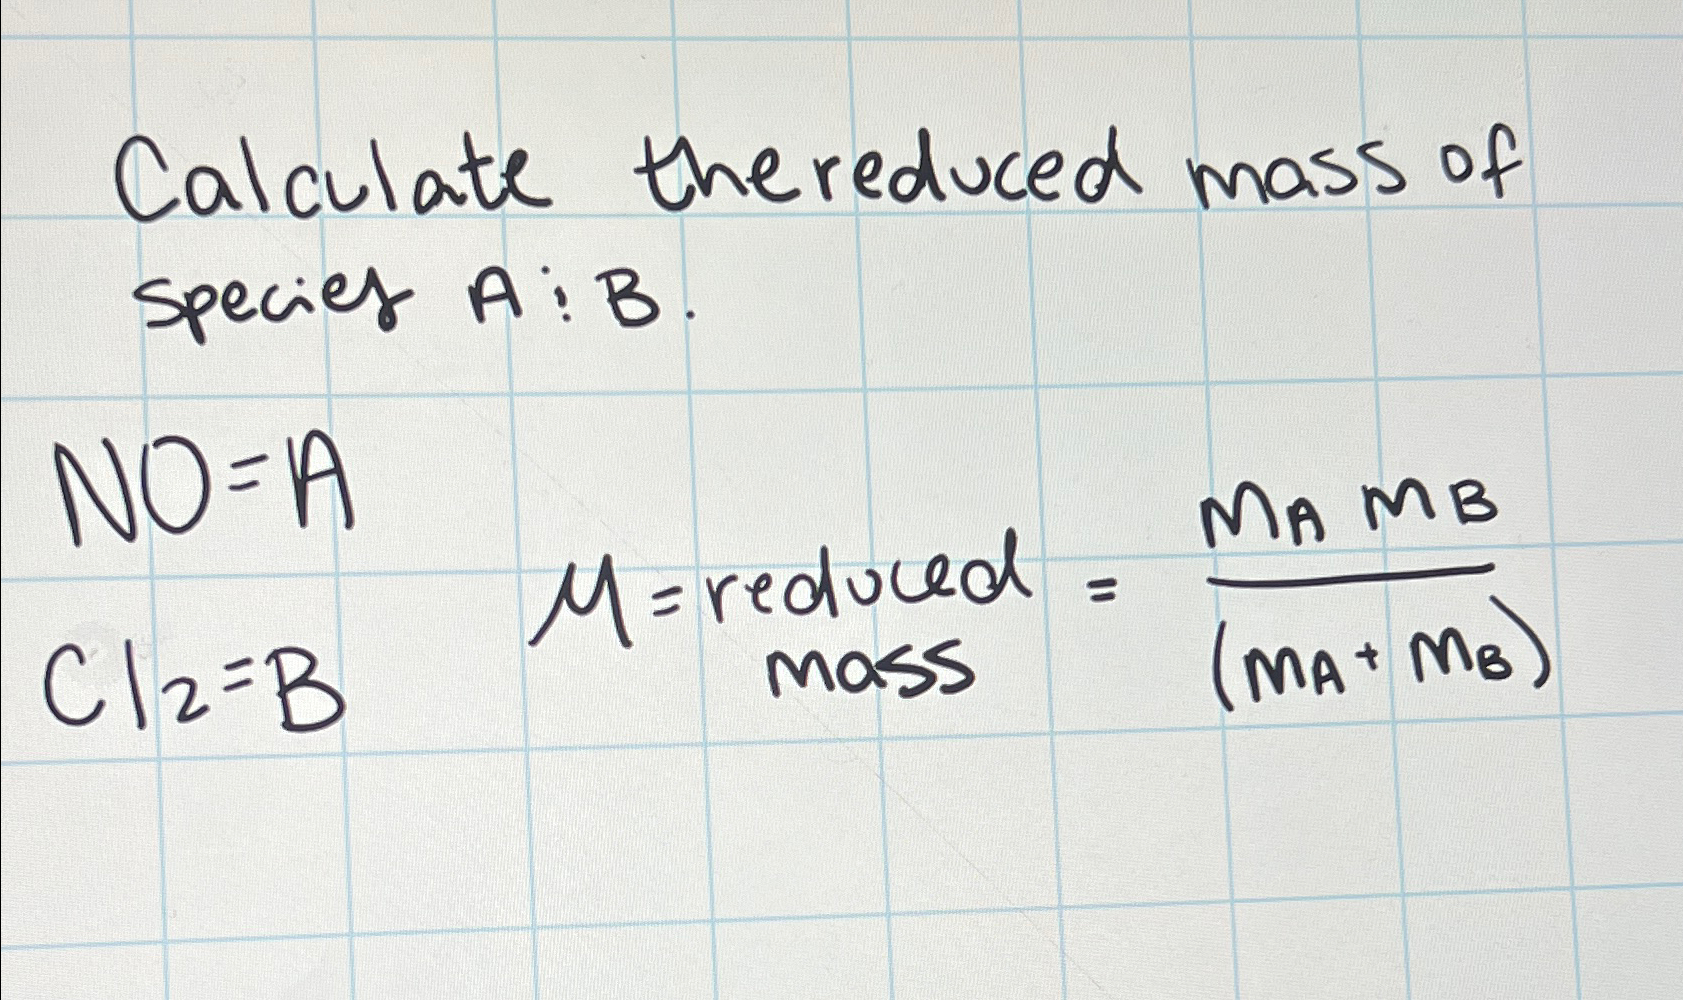 Calculate the reduced mass of
species A & B.
NO = A
Cl2 = B
μ = reduced mass = mA mB / (mA + mB)